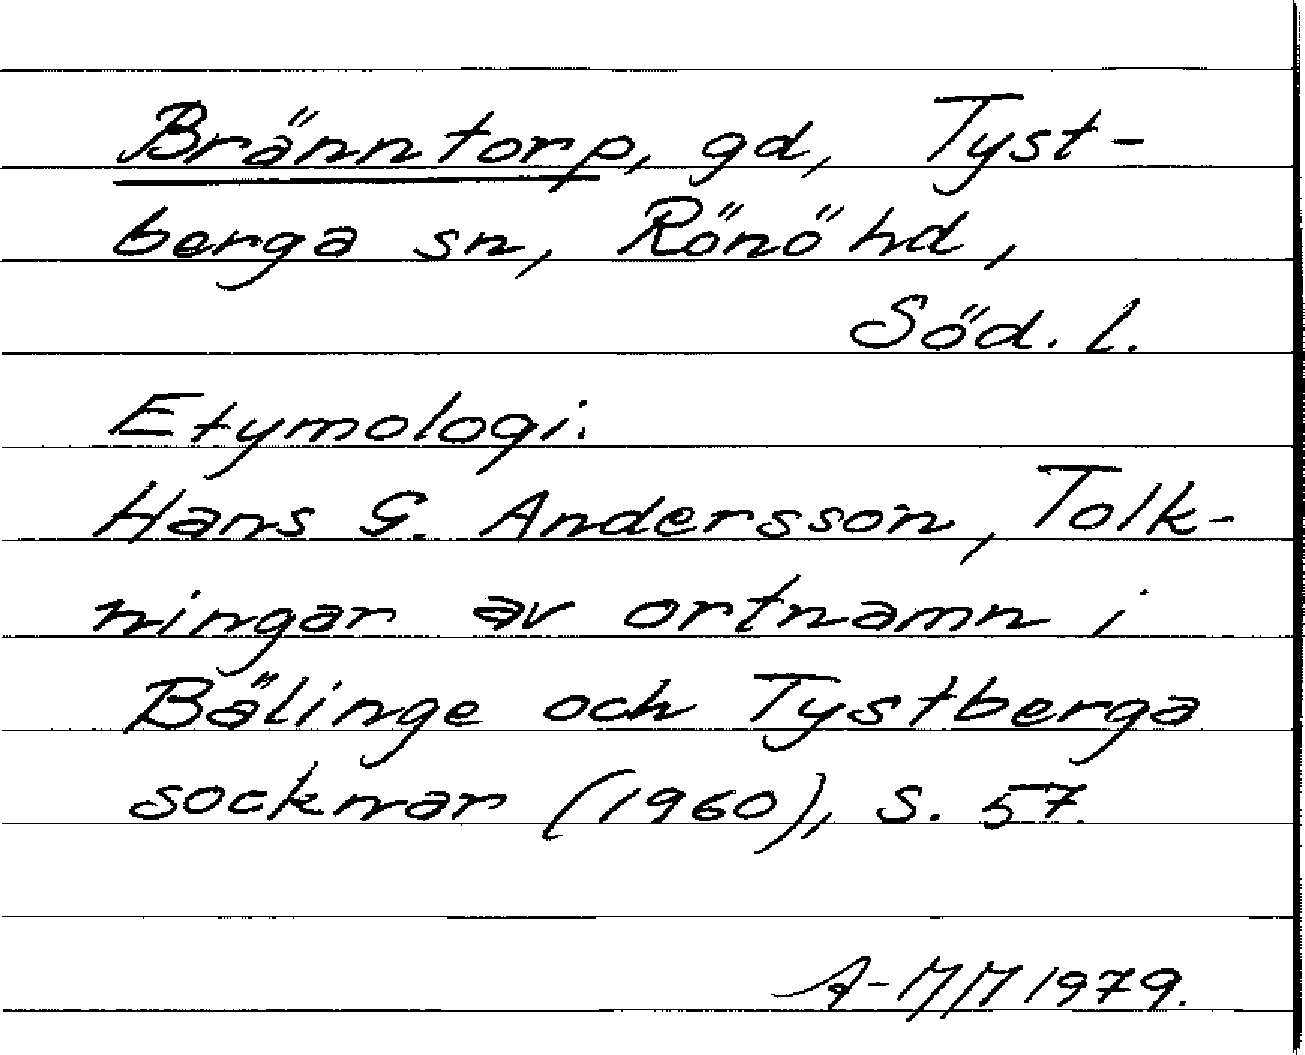 Bränntorp, gd, Tyst-
berga sn, Rönö hd,
Söd. l.
Etymologi.
Hans G. Andersson, Tolk-
ningar av ortnamn i
Bälinge och Tystberga
socknar (1960), s. 57.
A-MM 1979.